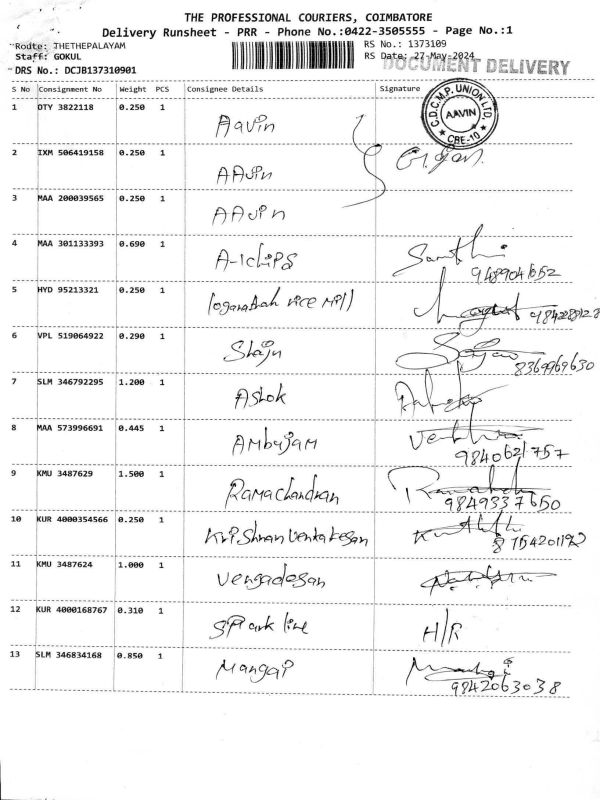 THE PROFESSIONAL COURIERS, COIMBATORE
Delivery Runsheet - PRR - Phone No.:0422-3505555 - Page No.:1
Rodte: THETHEPALAYAM RS No.: 1373109
Staff: GOKUL RS Date: 27-May-2024
DOCUMENT DELIVERY
DRS No.: DCJB137310901
S No Consignment No Weight PCS Consignee Details Signature
C.D.C.M.P. UNION LTD. AAVIN CBE-10
1 DTY 3822118 0.250 1 Aavin
2 IXM 506419158 0.250 1 AAvin
3 MAA 200039565 0.250 1 AAvin
4 MAA 301133393 0.690 1 A-1chips Santhi
9489041652
5 HYD 95213321 0.250 1 loganathah rice mill
6 VPL 519064922 0.290 1 Shaju
8369969630
7 SLM 346792295 1.200 1 Ashok
8 MAA 573996691 0.445 1 Ambujam
9840621757
9 KMU 3487629 1.500 1 Ramachandran
9849337650
10 KUR 4000354566 0.250 1 Krishnan Ventakesan
8754201192
11 KMU 3487624 1.000 1 Vengadesan
12 KUR 4000168767 0.310 1 SPark line H/R
13 SLM 346834168 0.850 1 Mangai
9842063038